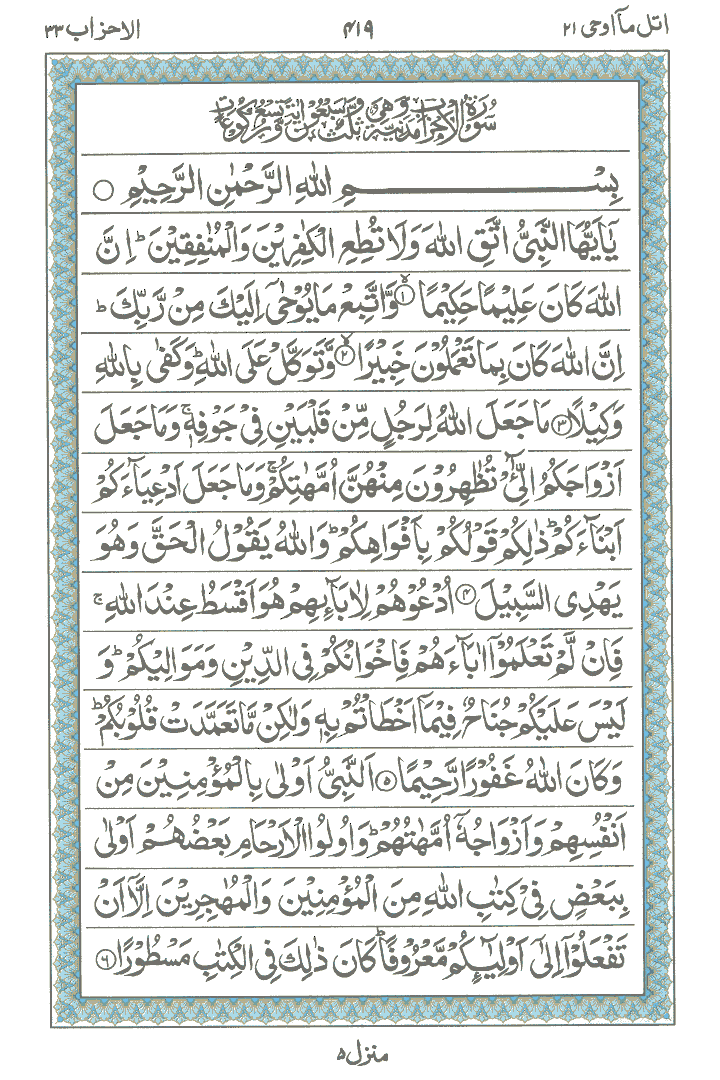 اتل مآ اوحی ٢١ ۴١٩ الاحزاب ٣٣
سُوْرَةُ الْاَحْزَابِ مَدَنِيَّةٌ وَّهِيَ ثَلٰثٌ وَّسَبْعُوْنَ اٰيَةً وَّتِسْعُ رُكُوْعَاتٍ
بِسْمِ اللّٰهِ الرَّحْمٰنِ الرَّحِيْمِ ○
يٰۤاَيُّهَا النَّبِيُّ اتَّقِ اللّٰهَ وَلَا تُطِعِ الْكٰفِرِيْنَ وَالْمُنٰفِقِيْنَ ؕ اِنَّ
اللّٰهَ كَانَ عَلِيْمًا حَكِيْمًا ۙ﴿١﴾ وَّاتَّبِعْ مَا يُوْحٰۤى اِلَيْكَ مِنْ رَّبِّكَ ؕ
اِنَّ اللّٰهَ كَانَ بِمَا تَعْمَلُوْنَ خَبِيْرًا ۙ﴿٢﴾ وَّتَوَكَّلْ عَلَى اللّٰهِ ؕ وَكَفٰى بِاللّٰهِ
وَكِيْلًا ﴿٣﴾ مَا جَعَلَ اللّٰهُ لِرَجُلٍ مِّنْ قَلْبَيْنِ فِيْ جَوْفِهٖ ۚ وَمَا جَعَلَ
اَزْوَاجَكُمُ الّٰٓـِٔيْ تُظٰهِرُوْنَ مِنْهُنَّ اُمَّهٰتِكُمْ ۚ وَمَا جَعَلَ اَدْعِيَآءَكُمْ
اَبْنَآءَكُمْ ؕ ذٰلِكُمْ قَوْلُكُمْ بِاَفْوَاهِكُمْ ؕ وَاللّٰهُ يَقُوْلُ الْحَقَّ وَهُوَ
يَهْدِى السَّبِيْلَ ﴿۴﴾ اُدْعُوْهُمْ لِاٰبَآئِهِمْ هُوَ اَقْسَطُ عِنْدَ اللّٰهِ ۚ
فَاِنْ لَّمْ تَعْلَمُوْۤا اٰبَآءَهُمْ فَاِخْوَانُكُمْ فِى الدِّيْنِ وَمَوَالِيْكُمْ ؕ وَ
لَيْسَ عَلَيْكُمْ جُنَاحٌ فِيْمَاۤ اَخْطَاْتُمْ بِهٖ وَلٰكِنْ مَّا تَعَمَّدَتْ قُلُوْبُكُمْ ؕ
وَكَانَ اللّٰهُ غَفُوْرًا رَّحِيْمًا ﴿۵﴾ اَلنَّبِيُّ اَوْلٰى بِالْمُؤْمِنِيْنَ مِنْ
اَنْفُسِهِمْ وَاَزْوَاجُهٗۤ اُمَّهٰتُهُمْ ؕ وَاُولُوا الْاَرْحَامِ بَعْضُهُمْ اَوْلٰى
بِبَعْضٍ فِيْ كِتٰبِ اللّٰهِ مِنَ الْمُؤْمِنِيْنَ وَالْمُهٰجِرِيْنَ اِلَّاۤ اَنْ
تَفْعَلُوْۤا اِلٰۤى اَوْلِيٰٓئِكُمْ مَّعْرُوْفًا ؕ كَانَ ذٰلِكَ فِى الْكِتٰبِ مَسْطُوْرًا ﴿٦﴾
منزل ۵